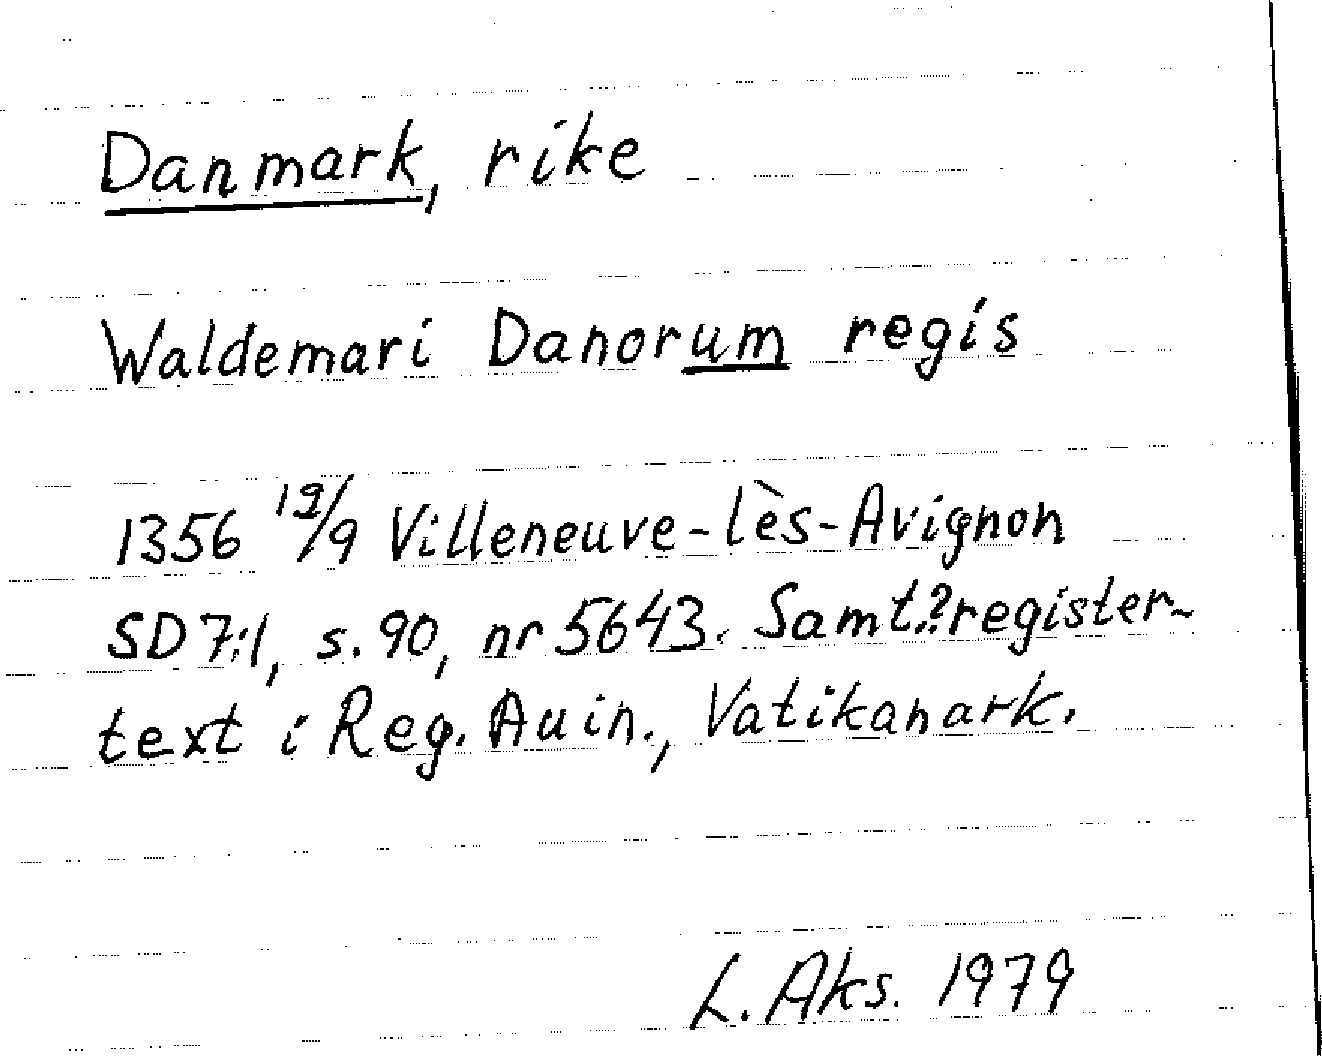 Danmark, rike
Waldemari Danorum regis
1356 19/9 Villeneuve-lès-Avignon
SD 7:1, s. 90, nr 5643. Samt.? register-
text i Reg. Auin., Vatikanark.
L. Aks. 1979